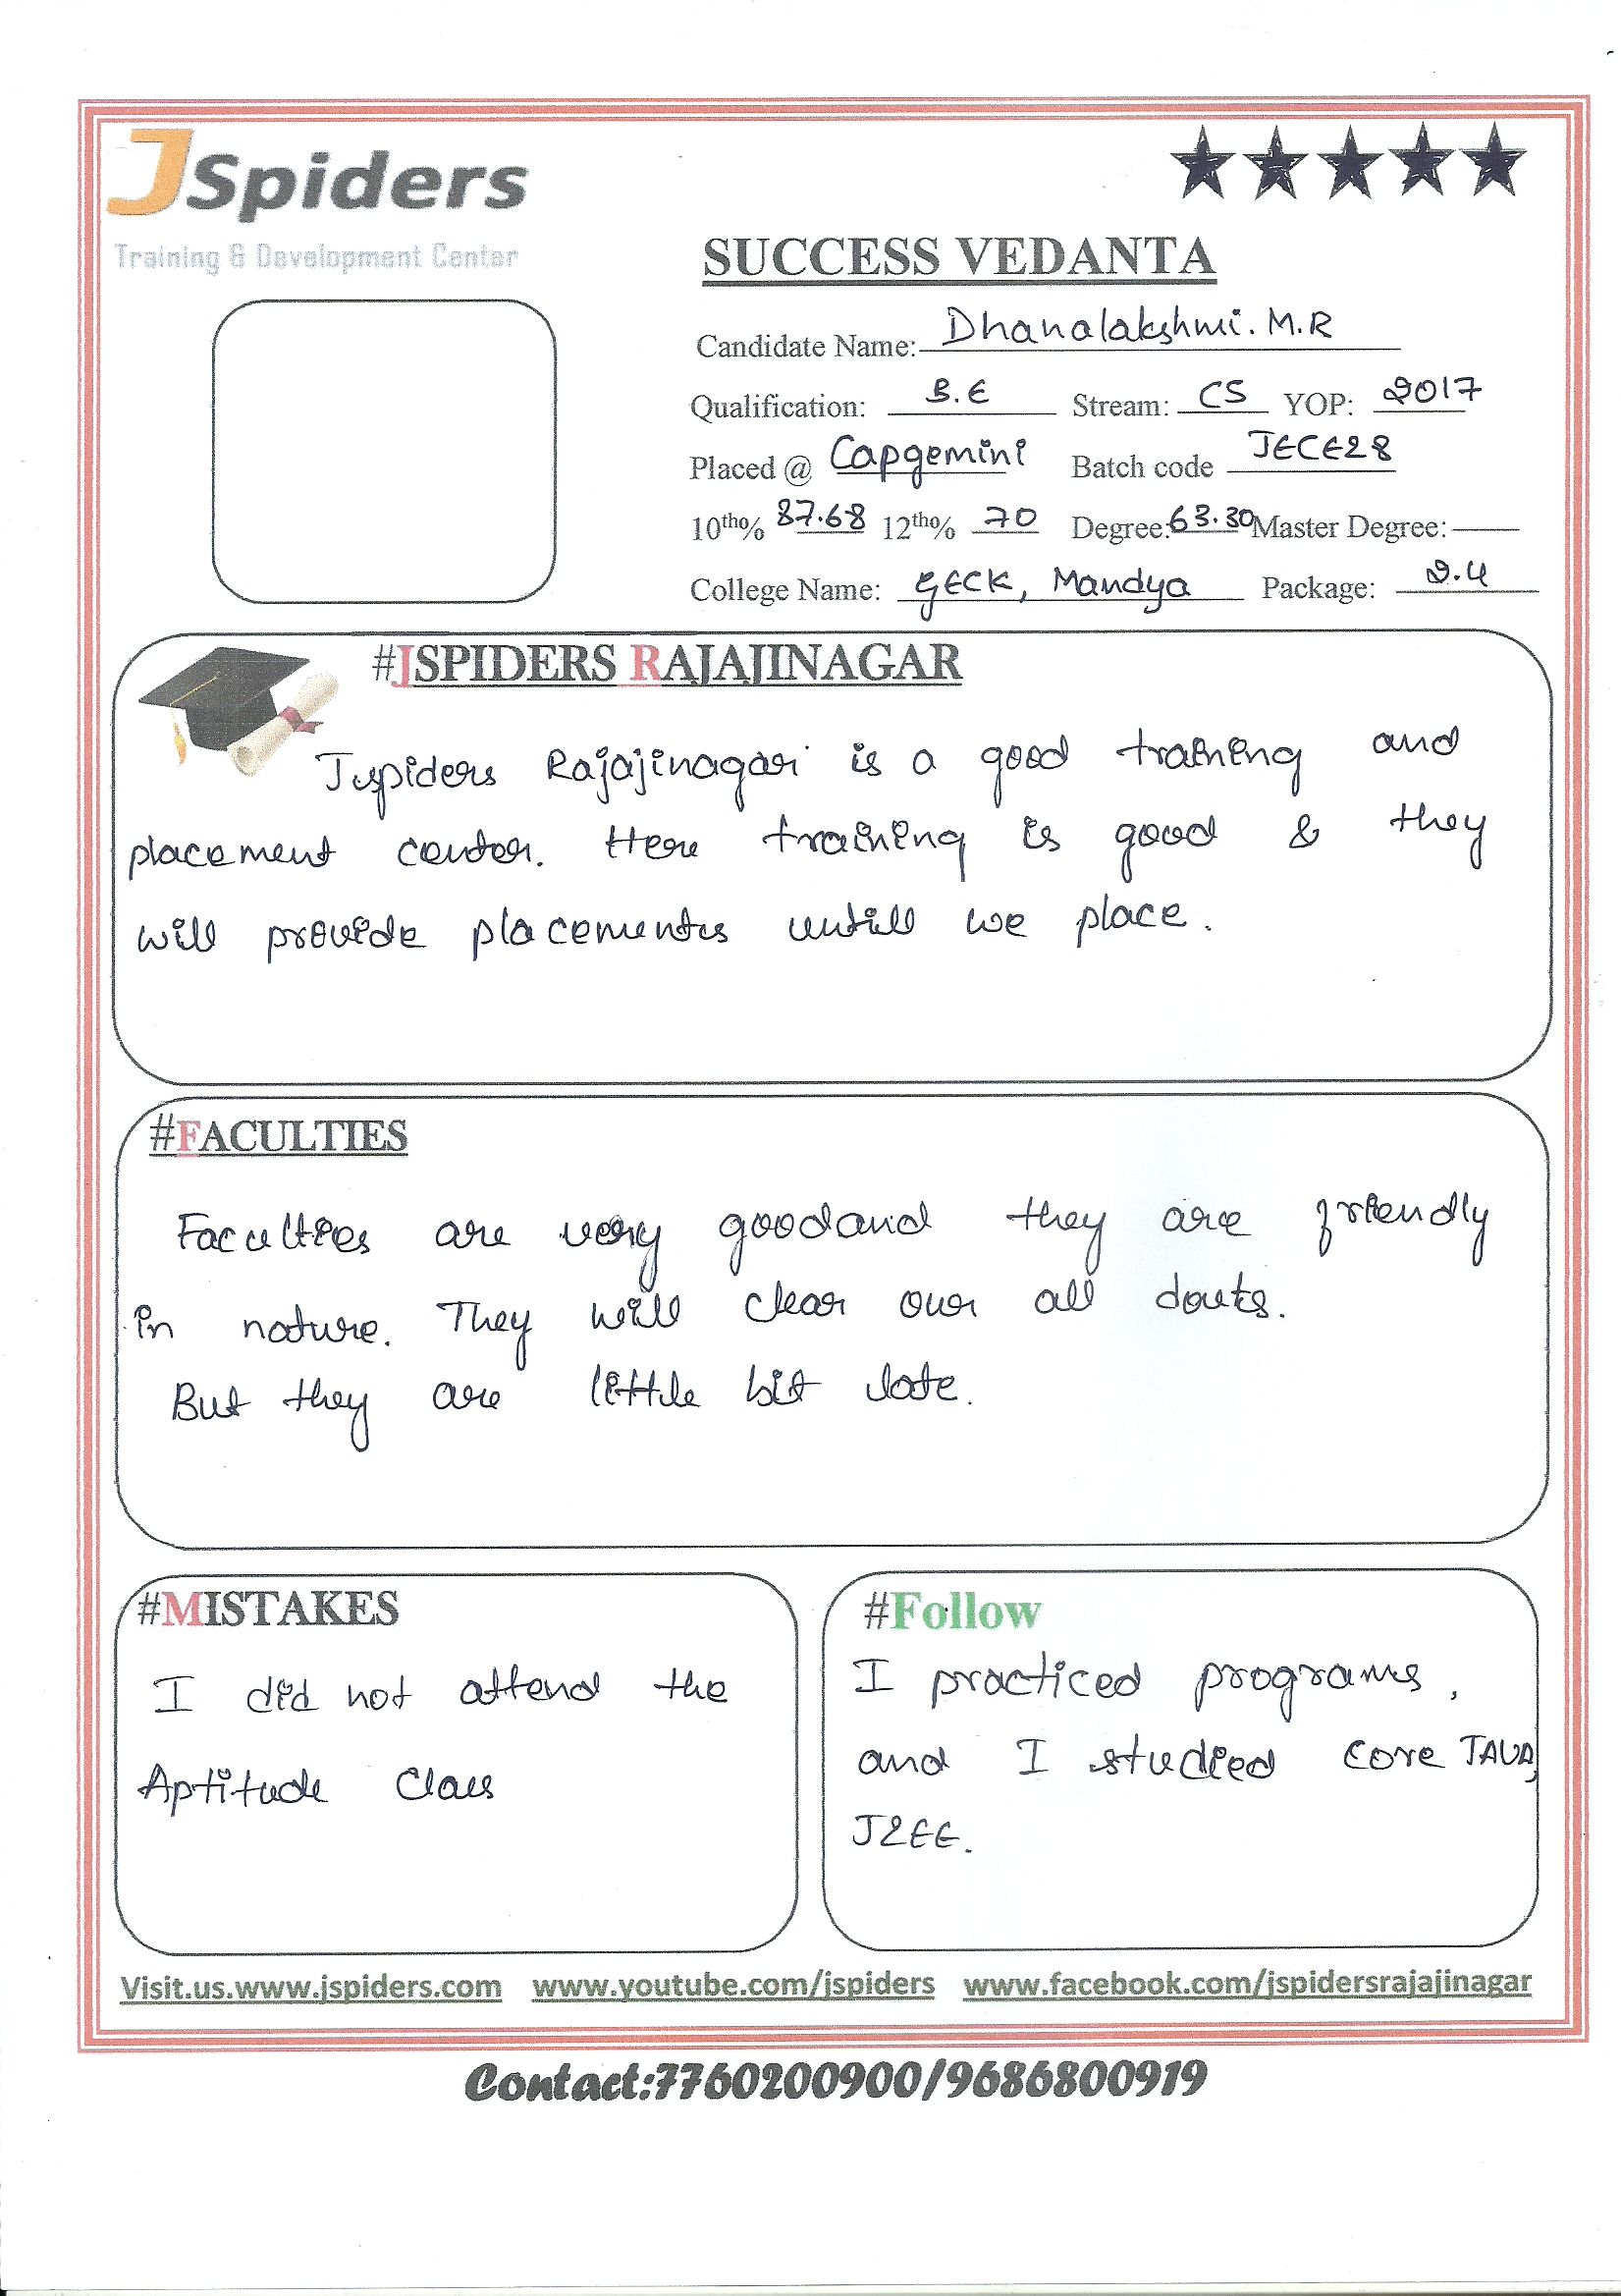 JSpiders
Training & Development Center
SUCCESS VEDANTA
Candidate Name: Dhanalakshmi. M.R
Qualification: B.E Stream: CS YOP: 2017
Placed @ Capgemini Batch code JECE28
10th% 87.68 12th% 70 Degree: 63.30 Master Degree: —
College Name: GECK, Mandya Package: 2.4
#JSPIDERS RAJAJINAGAR
Jspiders Rajajinagar is a good training and
placement center. Here training is good & they
will provide placements untill we place.
#FACULTIES
Faculties are very good and they are friendly
in nature. They will clear our all douts.
But they are little bit late.
#MISTAKES
I did not attend the
Aptitude Class
#Follow
I practiced programs,
and I studied core JAVA,
J2EE.
Visit.us.www.jspiders.com www.youtube.com/jspiders www.facebook.com/jspidersrajajinagar
Contact:7760200900/9686800919